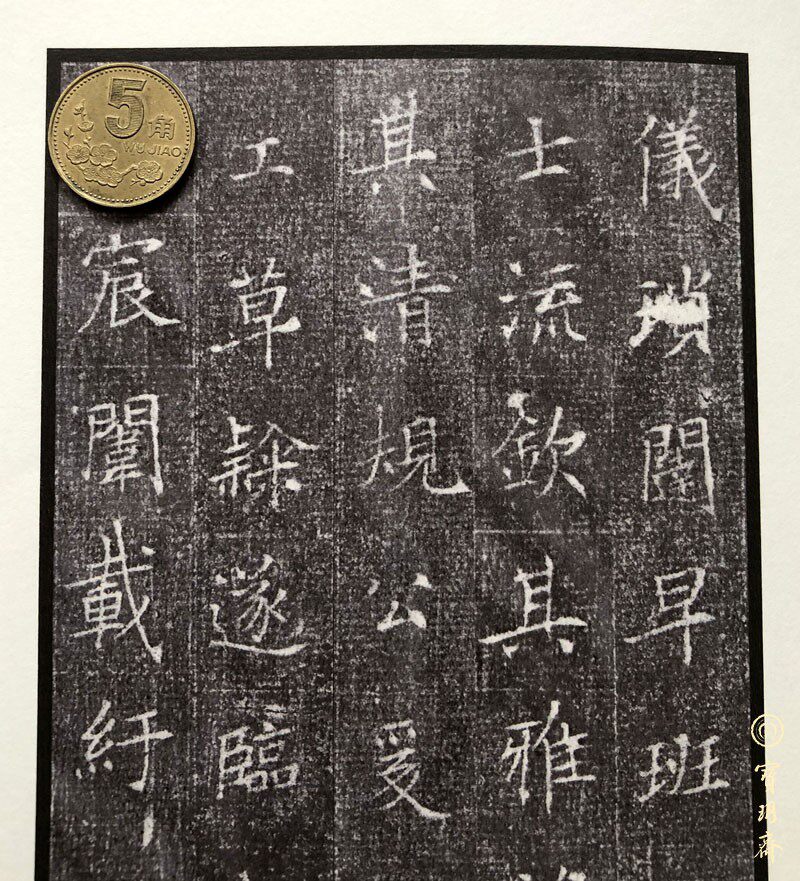 儀瑣闥早班
士流欽其雅
其清規公爰
工草隸遂臨
宸闈載紆
5角
WU JIAO
寶玥齋